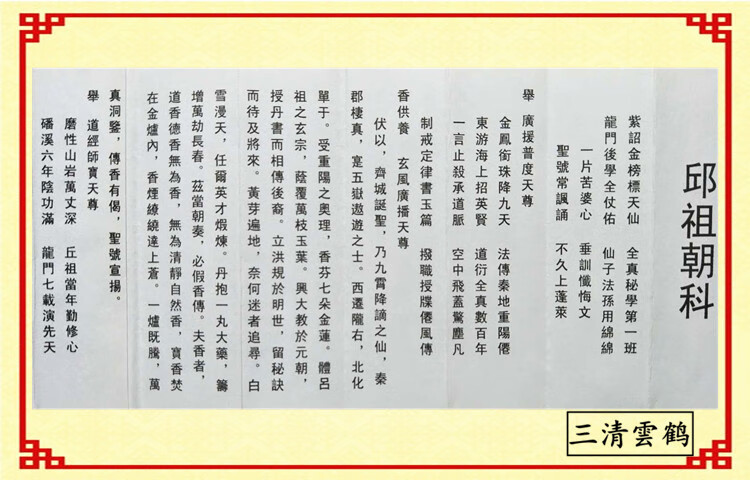 邱祖朝科
紫詔金榜標天仙　全真秘學第一班
龍門後學全仗佑　仙子法孫用綿綿
一片苦衷心　垂訓懺悔文
聖號常諷誦　不久上蓬萊
舉　廣援普度天尊
金鳳銜珠降九天　法傳秦地重陽僊
東游海上招英賢　道衍全真數百年
一言止殺承道脈　空中飛蓋驚塵凡
制戒定律書玉篇　撥職授牒僊風傳
香供養　玄風廣播天尊
伏以，齊城誕聖，乃九霄降謫之仙，秦
郡棲真，寔五嶽遨遊之士。西遷隴右，北化
單于。受重陽之奧理，香芬七朵金蓮。體呂
祖之玄宗，蔭覆萬枝玉葉。興大教於元朝，
授丹書而相傳後裔。立洪規於明世，留秘訣
而待及將來。黃芽遍地，奈何迷者追尋。白
雪漫天，任爾英才煅煉。丹抱一丸大藥，籌
增萬劫長春。茲當朝奏，必假香傳。夫香者，
道香德香無為香，無為清靜自然香，寶香焚
在金爐內，香煙繚繞達上蒼。一爐既騰，萬
真洞鑒，傳香有偈，聖號宣揚。
舉　道經師寶天尊
磨性山岩萬丈深　丘祖當年勤修心
磻溪六年陰功滿　龍門七載演先天
三清雲鹤